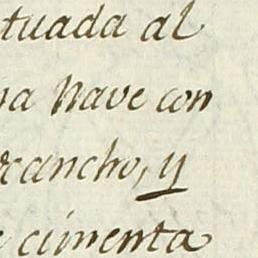 tuada al
na nave con
rancho, y
cimenta